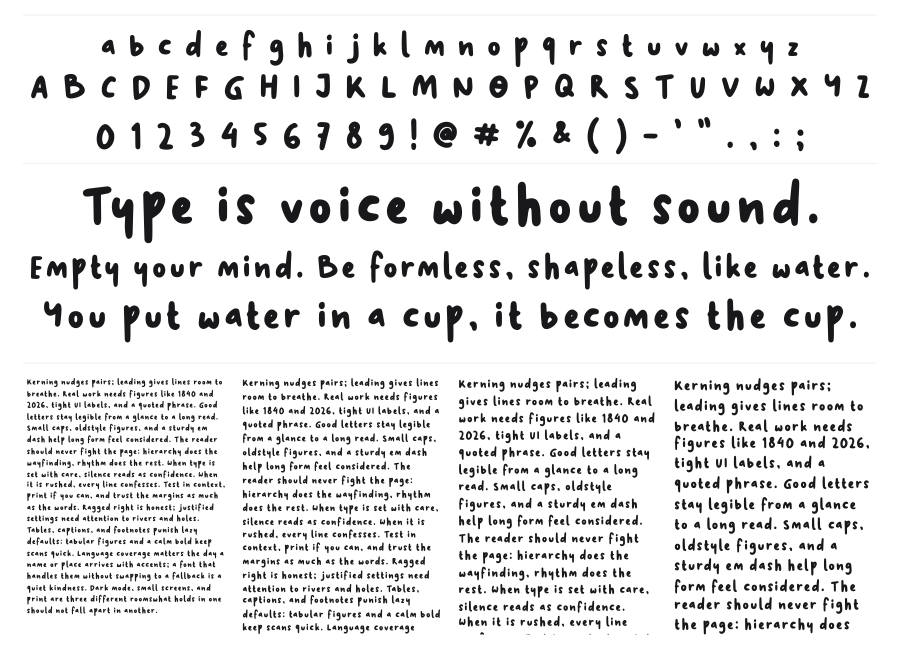 a b c d e f g h i j k l m n o p q r s t u v w x y z
A B C D E F G H I J K L M N O P Q R S T U V W X Y Z
0 1 2 3 4 5 6 7 8 9 ! @ # % & ( ) - ' " . , : ;
Type is voice without sound.
Empty your mind. Be formless, shapeless, like water.
You put water in a cup, it becomes the cup.
Kerning nudges pairs; leading gives lines room to
breathe. Real work needs figures like 1840 and
2026, tight UI labels, and a quoted phrase. Good
letters stay legible from a glance to a long read.
Small caps, oldstyle figures, and a sturdy em
dash help long form feel considered. The reader
should never fight the page: hierarchy does the
wayfinding, rhythm does the rest. When type is
set with care, silence reads as confidence. When
it is rushed, every line confesses. Test in context,
print if you can, and trust the margins as much
as the words. Ragged right is honest; justified
settings need attention to rivers and holes.
Tables, captions, and footnotes punish lazy
defaults: tabular figures and a calm bold keep
scans quick. Language coverage matters the day a
name or place arrives with accents; a font that
handles them without swapping to a fallback is a
quiet kindness. Dark mode, small screens, and
print are three different roomswhat holds in one
should not fall apart in another.
Kerning nudges pairs; leading gives lines
room to breathe. Real work needs figures
like 1840 and 2026, tight UI labels, and a
quoted phrase. Good letters stay legible
from a glance to a long read. Small caps,
oldstyle figures, and a sturdy em dash
help long form feel considered. The
reader should never fight the page:
hierarchy does the wayfinding, rhythm
does the rest. When type is set with care,
silence reads as confidence. When it is
rushed, every line confesses. Test in
context, print if you can, and trust the
margins as much as the words. Ragged
right is honest; justified settings need
attention to rivers and holes. Tables,
captions, and footnotes punish lazy
defaults: tabular figures and a calm bold
keep scans quick. Language coverage
Kerning nudges pairs; leading
gives lines room to breathe. Real
work needs figures like 1840 and
2026, tight UI labels, and a
quoted phrase. Good letters stay
legible from a glance to a long
read. Small caps, oldstyle
figures, and a sturdy em dash
help long form feel considered.
The reader should never fight
the page: hierarchy does the
wayfinding, rhythm does the
rest. When type is set with care,
silence reads as confidence.
When it is rushed, every line
Kerning nudges pairs;
leading gives lines room to
breathe. Real work needs
figures like 1840 and 2026,
tight UI labels, and a
quoted phrase. Good letters
stay legible from a glance
to a long read. Small caps,
oldstyle figures, and a
sturdy em dash help long
form feel considered. The
reader should never fight
the page: hierarchy does